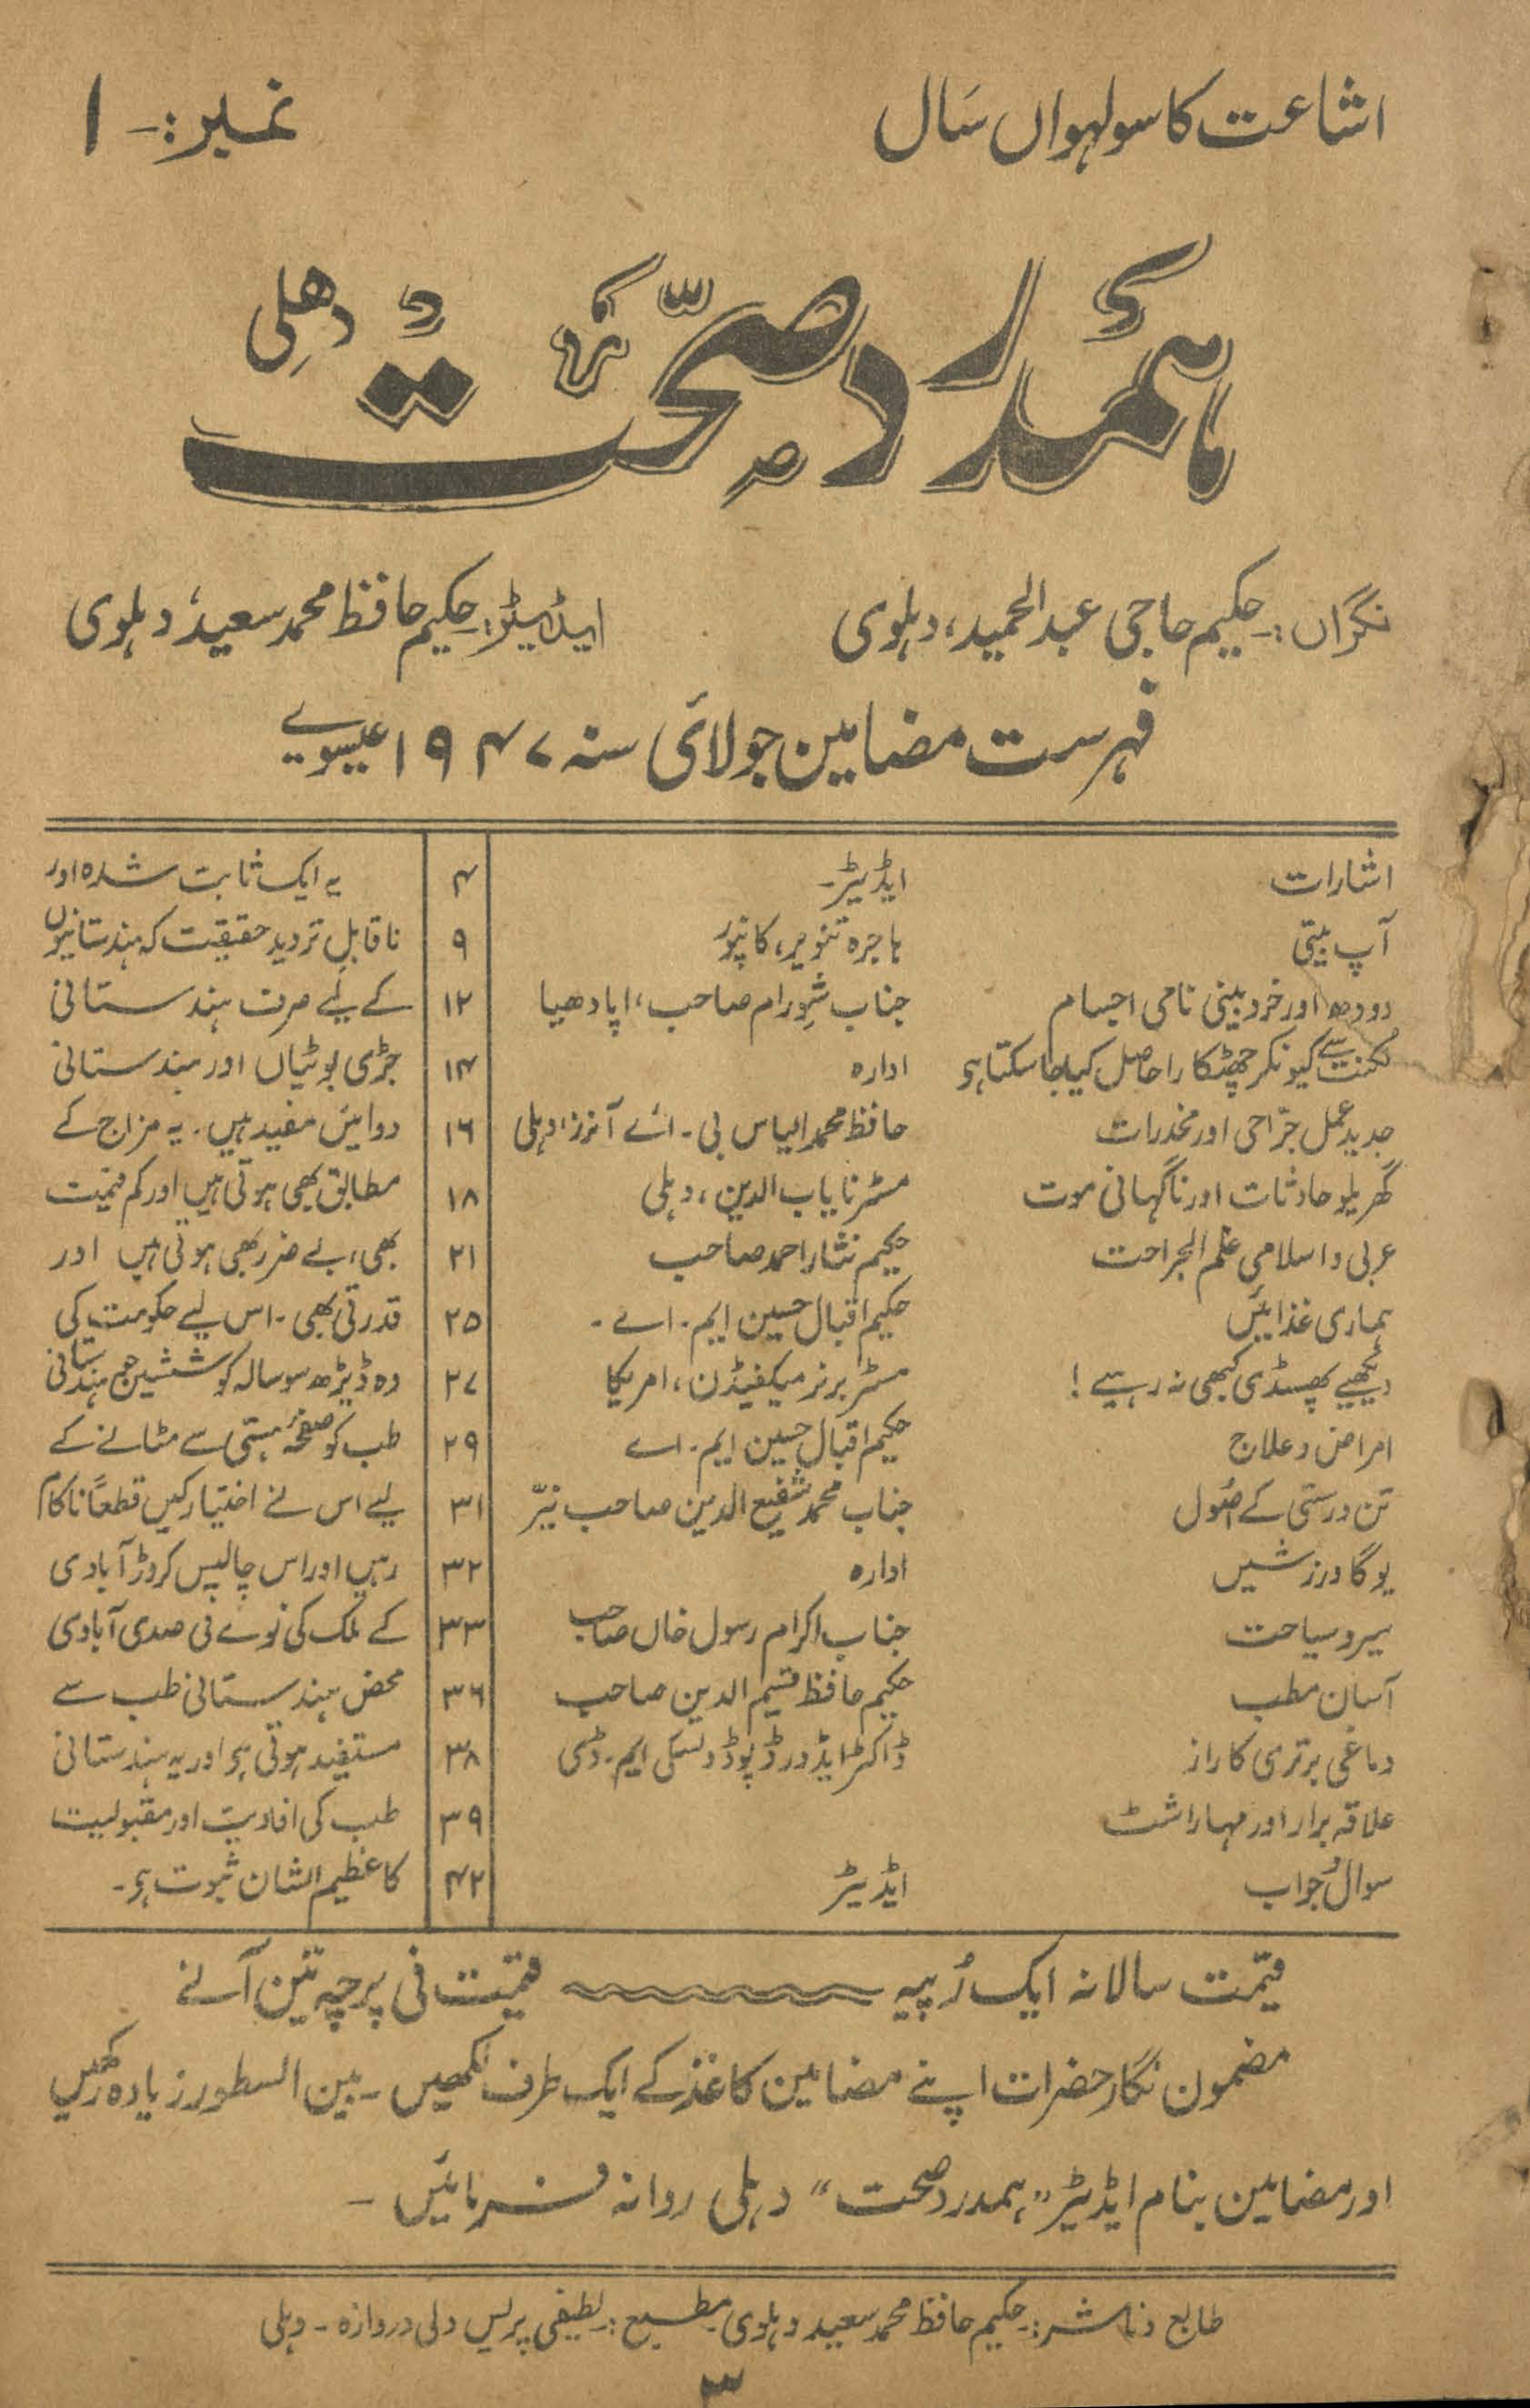 اشاعت کا سولہواں سَال
نمبر:۔ ۱
ہمدرد صحّت دھلی
نگراں:۔ حکیم حاجی عبدالحمید، دہلوی
ایڈیٹر:۔ حکیم حافظ محمد سعید، دہلوی
فہرست مضامین جولائی سنہ ۱۹۴۷ عیسوی
اشارات ایڈیٹر۔ ۴
آپ بیتی ہاجرہ تنویر، کانپور ۹
دودھ اور خرد بینی نامی اجسام جناب شِورام صاحب، اپادھیا ۱۲
لکنت سے کیونکر چھٹکارا حاصل کیا جا سکتا ہو ادارہ ۱۴
جدید عمل جرّاحی اور مخدرات حافظ محمد الیاس بی۔ اے آنرز، دہلی ۱۶
گھریلو حادثات اور ناگہانی موت مسٹر نایاب الدین، دہلی ۱۸
عربی و اسلامی علم الجراحت حکیم نثار احمد صاحب ۲۱
ہماری غذائیں حکیم اقبال حسین ایم۔ اے۔ ۲۵
دیکھیے پھسڈی کبھی نہ رہیے! مسٹر برنر میکفیڈن، امریکا ۲۷
امراض و علاج حکیم اقبال حسین ایم۔ اے ۲۹
تن درستی کے اصُول جناب محمد شفیع الدین صاحب نیّر ۳۱
یوگا ورزشیں ادارہ ۳۲
سیر و سیاحت جناب اکرام رسول خاں صاحب ۳۳
آسان مطب حکیم حافظ قسیم الدین صاحب ۳۶
دماغی برتری کا راز ڈاکٹر ایڈورڈ پوڈولسکی ایم۔ ڈی ۳۸
علاقہ برار اور مہاراشٹ ۳۹
سوال و جواب ایڈیٹر ۴۲
یہ ایک ثابت شدہ اور
ناقابلِ تردید حقیقت کہ ہندستانیوں
کے لیے صرف ہندستانی
جڑی بوٹیاں اور ہندستانی
دوائیں مفید ہیں۔ یہ مزاج کے
مطابق بھی ہوتی ہیں اور کم قیمت
بھی، بے ضرر بھی ہوتی ہیں اور
قدرتی بھی۔ اس لیے حکومت کی
وہ ڈیڑھ سو سالہ کوششیں جو ہندستانی
طب کو صفحۂ ہستی سے مٹانے کے
لیے اس نے اختیار کیں قطعاً ناکام
رہیں اور اس چالیس کروڑ آبادی
کے ملک کی نوے فی صدی آبادی
محض ہندستانی طب سے
مستفید ہوتی ہو اور یہ ہندستانی
طب کی افادیت اور مقبولیت
کا عظیم الشان ثبوت ہو۔
قیمّت سالانہ ایک رُپیہ قیمّت فی پرچہ تین آنے
مضمون نگار حضرات اپنے مضامین کاغذ کے ایک طرف لکھیں۔ بین السطور زیادہ رکھیں
اور مضامین بنام ایڈیٹر ”ہمدرد صحت“ دہلی روانہ فرمائیں۔
طابع و ناشر:۔ حکیم حافظ محمد سعید دہلوی۔ مطبع:۔ لطیفی پریس دلی دروازہ۔ دہلی
۳